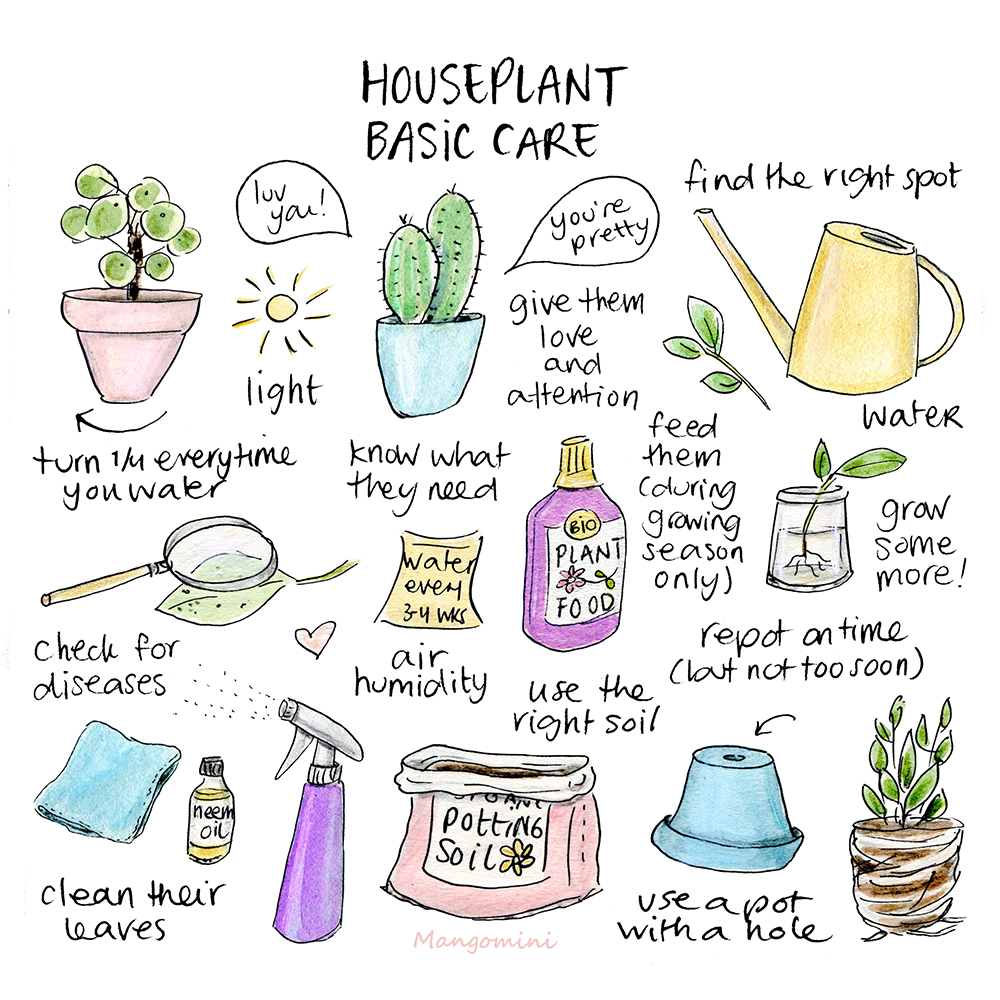 HOUSEPLANT
BASIC CARE
luv
you!
light
turn 1/4 everytime
you water
you're
pretty
give them
love
and
attention
know what
they need
find the right spot
water
check for
diseases
water
every
3-4 wks
air
humidity
BIO
PLANT
FOOD
feed
them
(during
growing
season
only)
grow
some
more!
repot on time
(but not too soon)
use the
right soil
neem
oil
clean their
leaves
ORGANIC
Potting
Soil
use a pot
with a hole
Mangomini